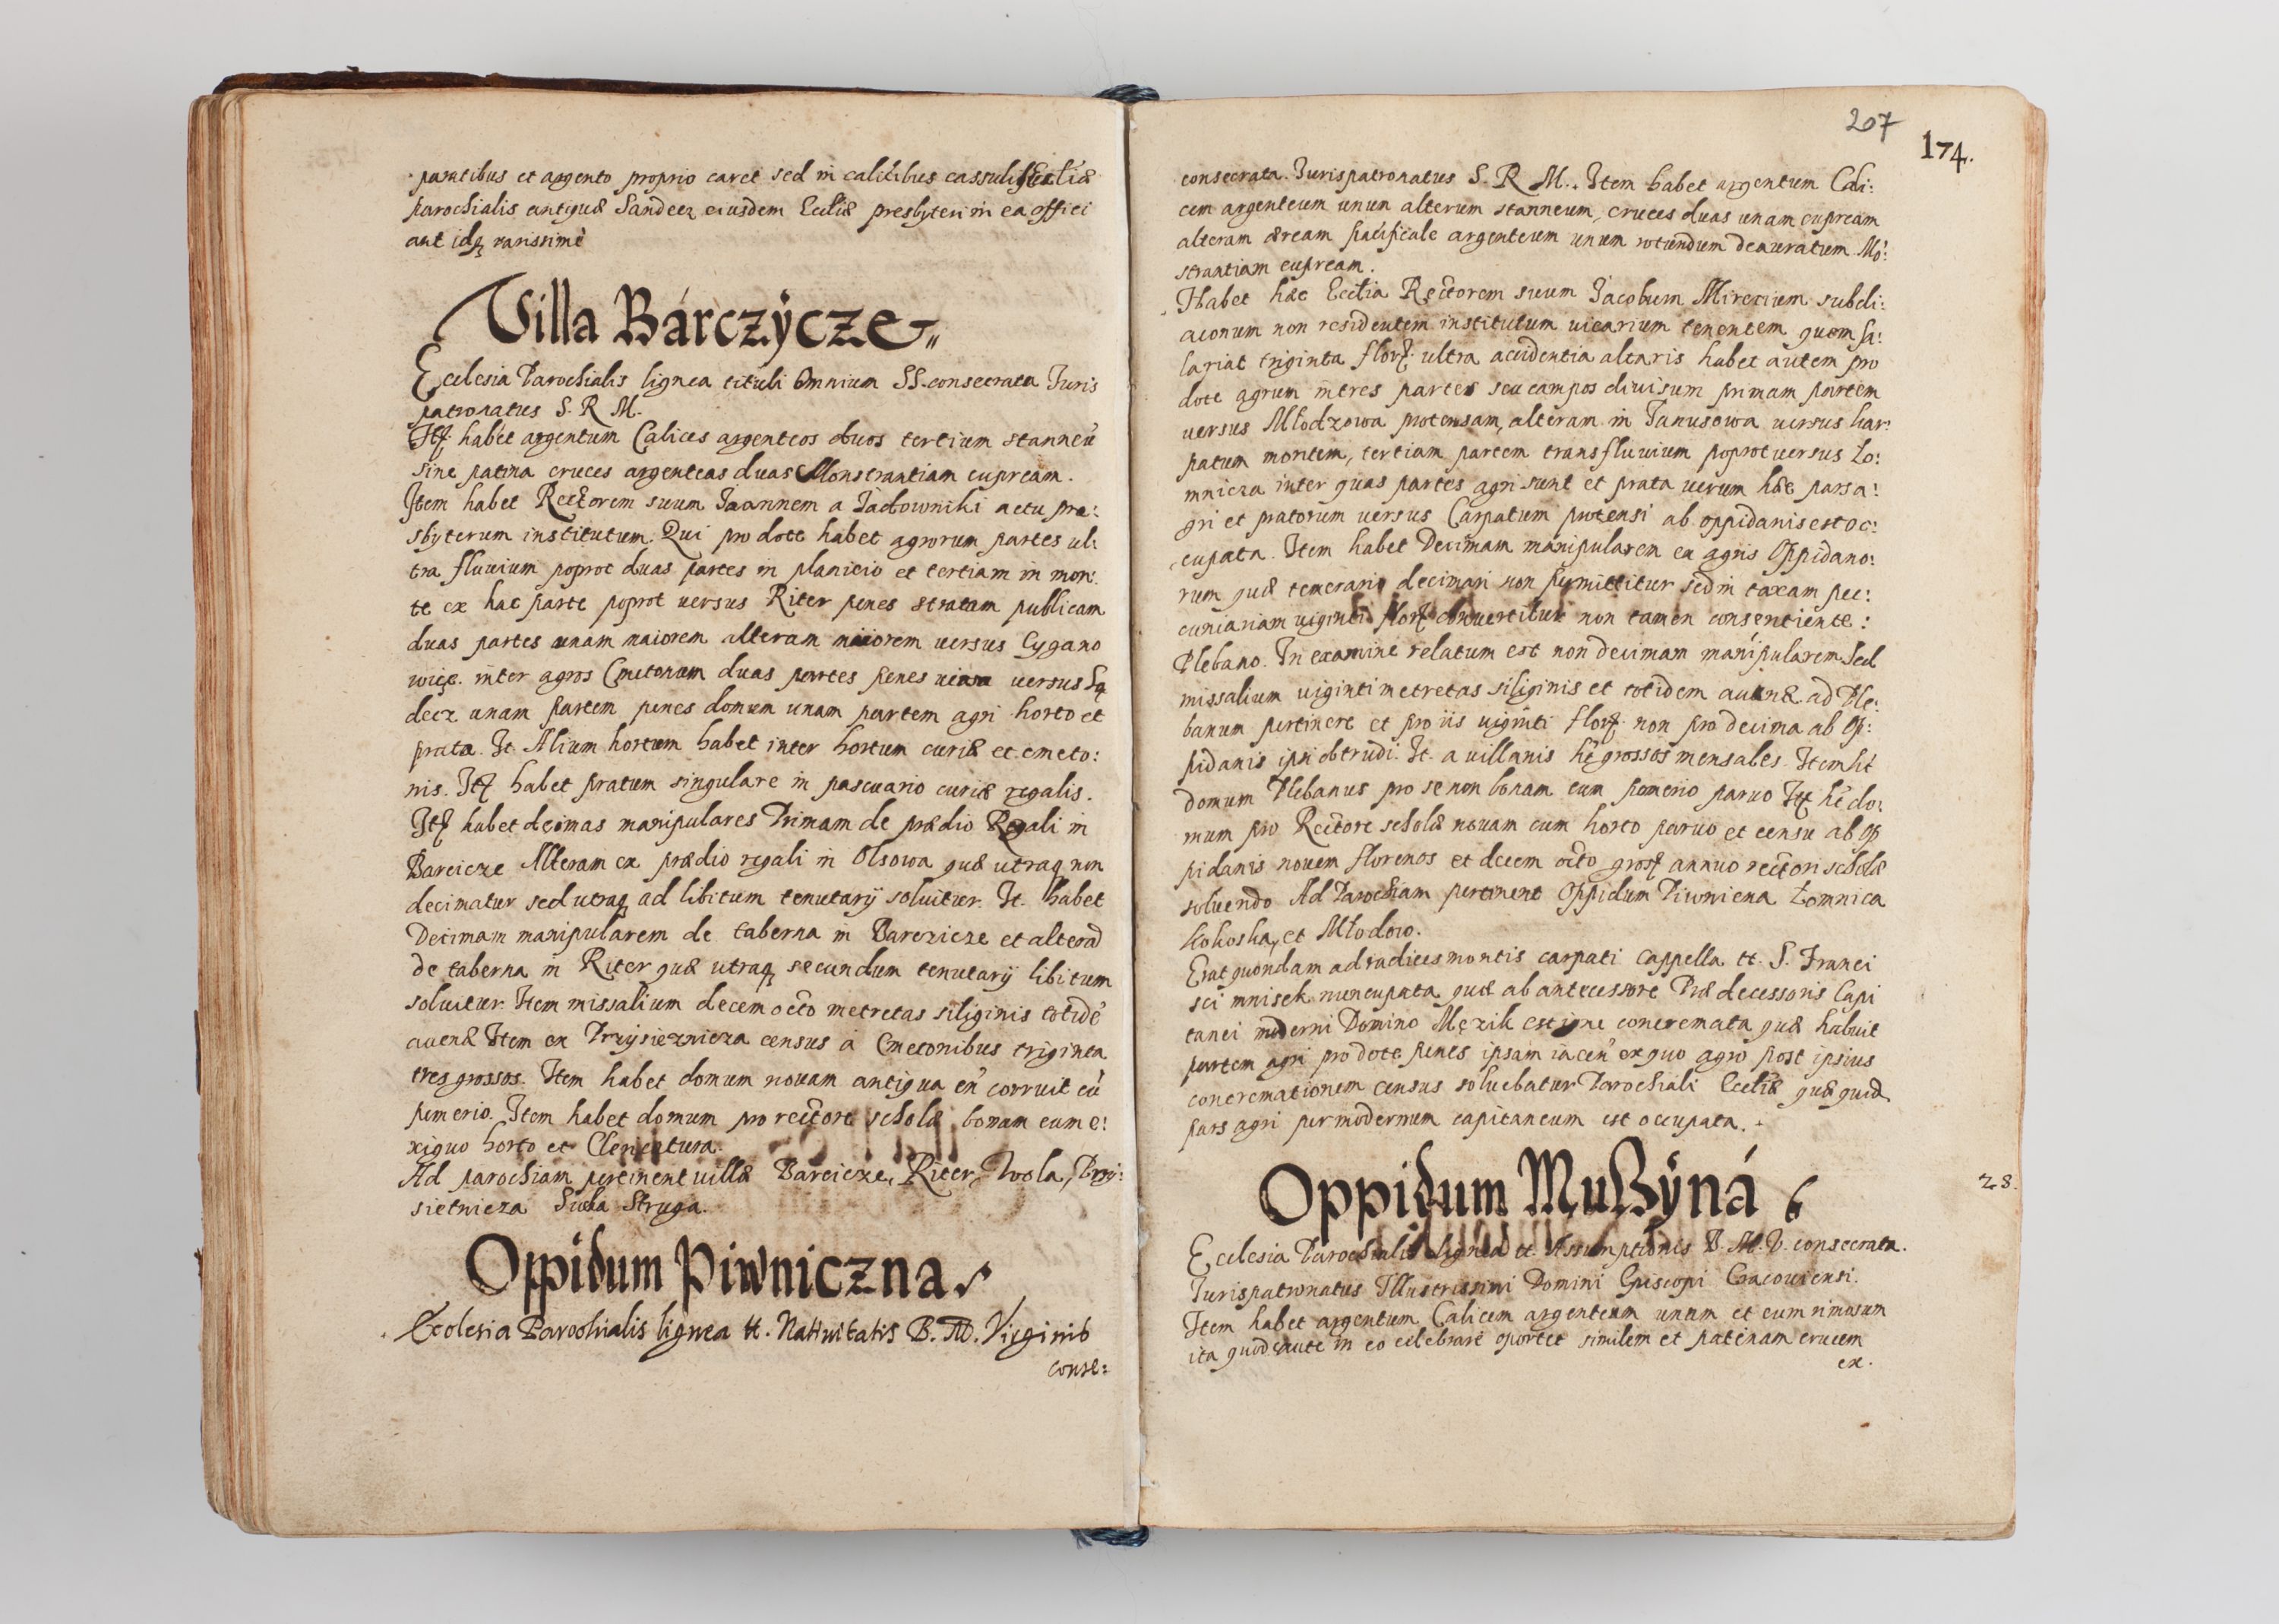 paratibus et argento proprio caret sed in calicibus cassulis Ecctiæ
parochialis antiquæ Sandecz eiusdem Eccliæ presbyteri in ea offici
ant idq rarissimè
Villa Bárczÿcze
Ecclesia Parochialis lignea tituli Omnium SS. consecrata Iuris
patronatus S. R M.
Itq habet argentum Calices argenteos duos tertium stanneũ
sine patina cruces argenteas duas Monstrantiam cupream.
Item habet Rectorem suum Ioannem a actu pre:
sbyterum institutum. Qui pro dote habet agrorum partes ul:
tra fluuium poprot duas partes in planicio et tertiam in mon:
te ex hac parte poprot uersus Riter penes stratam publicam
duas partes unam maiorem alteram minorem uersus Cygano
więc. inter agros Cmetonum duas partes penes uiam uersus Są
decz unam partem penes domum unam partem agri horto et
prata. It. Alium hortum habet inter hortum curiæ et cmeto:
nis. Itq habet pratum singulare in pascuario curiæ regalis.
Itq habet decimas manipulares Primam de prædio Regali in
Barcicze Alteram ex prædio regali in Olsowa quæ utraq non
decimatur sed utraq ad libitum tenutarij soluitur. It. habet
Decimam manipularem de taberna in Barczicze et alterã
de taberna in Riter quæ utraq secundum tenutarij libitum
soluitur. Item missalium decem octo metretas siliginis totidẽ
auenæ Item ex Przysieznicza census a Cmetonibus triginta
tres grossos. Item habet domum nouam antiqua eñ corruit cũ
pomerio. Item habet domum pro rectore scholæ bonam cum e:
xiguo horto et Clericatura.
Ad parochiam pertinent uillæ Barcicze, Riter, Wola, Przy:
sietnicza Sucha Struga.
Oppidum Piwniczna
Ecclesia Parochialis lignea tt. Natiuitatis B. M. Virginis
conse:
207
174.
consecrata. Iurispatronatus S. R M. Item habet argentum Cali:
cem argenteum unum alterum stanneum, cruces duas unam cupream
alteram æream pacificale argenteum unum rotundum deauratum Mõ:
strantiam cupream.
Habet hæc Ecclia Rectorem suum Iacobum subdi:
aconum non residentem institutum uicarium tenentem quem sa:
lariat triginta florq ultra accidentia altaris habet autem pro
dote agrum in tres partes seu campos diuisum primam partem
uersus Młodzowa protensam, alteram in Janusowa uersus kar:
patum montem, tertiam partem trans fluuium poprot uersus Ło:
mnicza inter quas partes agri sunt et prata uerum hæc pars a:
gri et pratorum uersus Carpatum protensi ab oppidanis est oc:
cupata. Item habet Decimam manipularem ex agris Oppidano:
rum quæ temerario decimari non permittitur sed in taxam pec:
cuniariam uiginti florq conuertitur non tamen consentiente:
Plebano. In examine relatum est non decimam manipularem Sed
missalium uiginti metretas siliginis et totidem auenæ ad Ple:
banum pertinere et pro iis uiginti florq non pro decima ab Op:
pidanis ipsi obtrudi. It. a uillanis hẽ grossos mensales. Item ht
domum Plebanus pro se non bonam cum pomerio paruo Itq hẽ do:
mum pro Rectore scholæ nouam cum horto paruo et censu ab Op
pidanis nouem florenos et decem octo grosq annuo rectori scholæ
soluendo Ad Parochiam pertinent Oppidum Piwniena Łomnica
Kokoska, et Młodow.
Erat quondam ad radices montis carpati Cappella tt. S. Franci
sci mnisek nuncupata quæ ab antecessore Prædecessoris Capi
tanei moderni Domino Męzik est igne concremata quæ habuit
partem agri pro dote penes ipsam iaceñ ex quo agro post ipsius
concremationem census soluebatur Parochiali Eccliæ quæ quidẽ
pars agri per modernum capitaneum est occupata.
Oppidum Mußÿná
28.
Ecclesia Parochialis lignea tt. Assumptionis B. M. V. consecrata.
Iurispatronatus Illustrissimi Domini Episcopi Cracouiensi.
Item habet argentum Calicem argenteum unum et eum rimosum
ita quod caute in eo celebrare oportet similem et patenam crucem
ex.